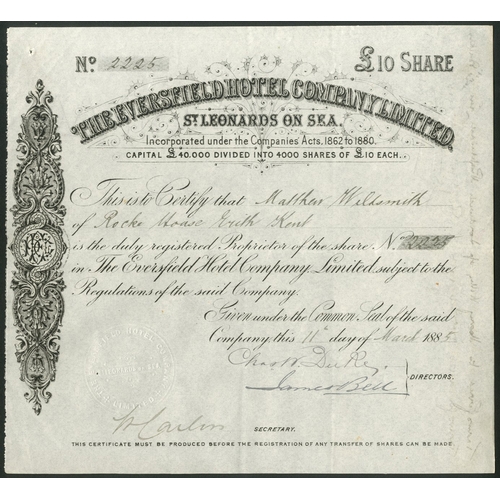 No. 2225 £10 SHARE
THE EVERSFIELD HOTEL COMPANY, LIMITED,
ST LEONARDS ON SEA.
Incorporated under the Companies Acts, 1862 to 1880.
CAPITAL £40,000 DIVIDED INTO 4000 SHARES OF £10 EACH.
This is to Certify that Matthew Wildsmith
of Rocke House Erith Kent
is the duly registered Proprietor of the share No. 2225
in The Eversfield Hotel Company, Limited subject to the
Regulations of the said Company.
Given under the Common Seal of the said
Company this 11th day of March 1885.
James Bell
DIRECTORS.
SECRETARY.
THIS CERTIFICATE MUST BE PRODUCED BEFORE THE REGISTRATION OF ANY TRANSFER OF SHARES CAN BE MADE.